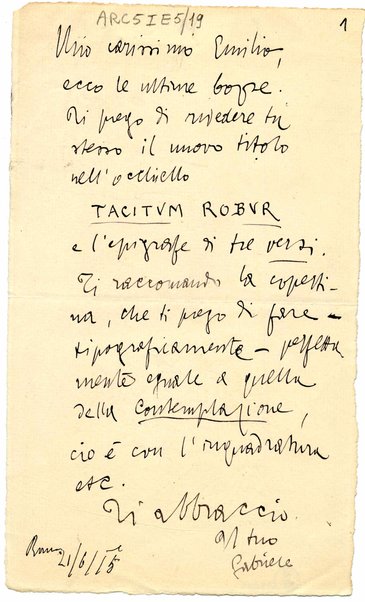 ARC5IE5/19
1
Mio carissimo Emilio,
ecco le ultime bozze.
Ti prego di rivedere tu
stesso il nuovo titolo
nell'occhiello
TACITVM ROBVR
e l'epigrafe di tre versi.
Ti raccomando la coperti-
na, che ti prego di fare –
tipograficamente – perfetta
mente eguale a quella
della Contemplazione,
cio è con l'inquadratura
etc.
Ti abbraccio.
Il tuo
Gabriele
Roma
21/6/15